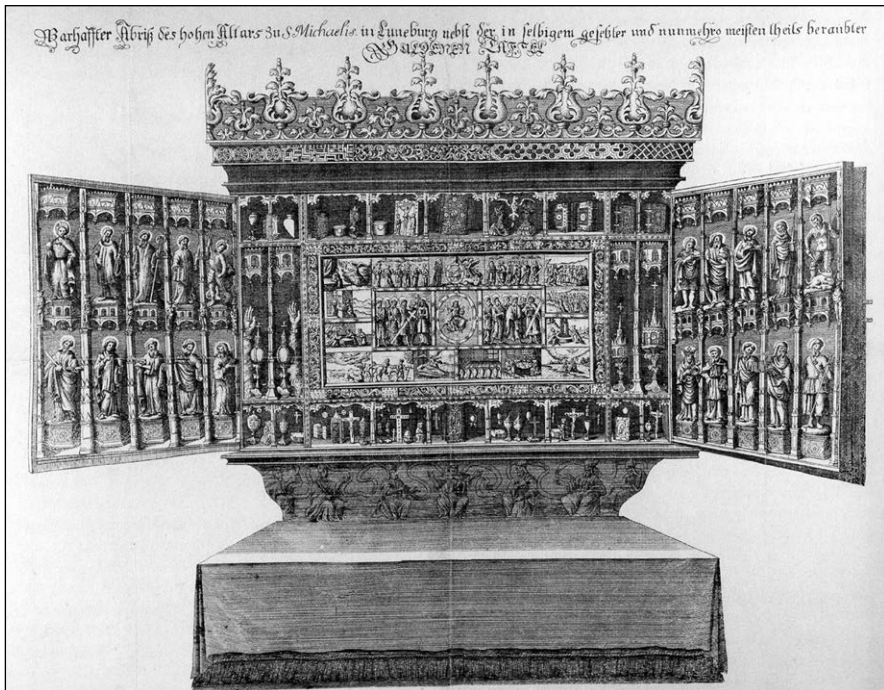 Warhaffter Abriß des hohen Altars zu S. Michaelis in Luneburg nebst der in selbigem gesetzter und nunmehro meisten theils beraubter
GÜLDENEN TAFFEL